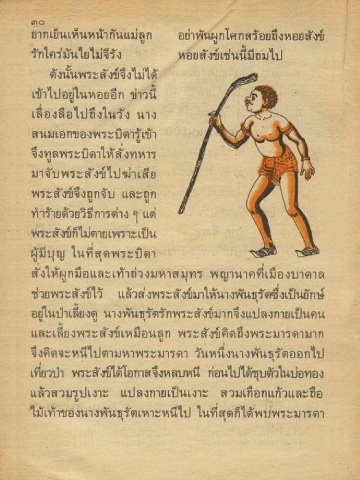 ๓๐
ยากเย็นเห็นหน้ากันแม่ลูก อย่าพันผูกโศกสร้อยถึงหอยสังข์
รักใคร่มันไยไม่จีรัง หอยสังข์เช่นนี้มีถมไป
ดังนั้นพระสังข์จึงไม่ได้
เข้าไปอยู่ในหอยอีก ข่าวนี้
เลื่องลือไปถึงในวัง นาง
สนมเอกของพระบิดารู้เข้า
จึงทูลพระบิดาให้สั่งทหาร
มาจับพระสังข์ไปฆ่าเสีย
พระสังข์จึงถูกจับ และถูก
ทำร้ายด้วยวิธีการต่าง ๆ แต่
พระสังข์ก็ไม่ตายเพราะเป็น
ผู้มีบุญ ในที่สุดพระบิดา
สั่งให้ผูกมือและเท้าถ่วงมหาสมุทร พญานาคที่เมืองบาดาล
ช่วยพระสังข์ไว้ แล้วส่งพระสังข์มาให้นางพันธุรัตซึ่งเป็นยักษ์
อยู่ในป่าเลี้ยงดู นางพันธุรัตรักพระสังข์มากจึงแปลงกายเป็นคน
และเลี้ยงพระสังข์เหมือนลูก พระสังข์คิดถึงพระมารดามาก
จึงคิดจะหนีไปตามหาพระมารดา วันหนึ่งนางพันธุรัตออกไป
เที่ยวป่า พระสังข์ได้โอกาสจึงหลบหนี ก่อนไปได้ชุบตัวในบ่อทอง
แล้วสวมรูปเงาะ แปลงกายเป็นเงาะ สวมเกือกแก้วและถือ
ไม้เท้าของนางพันธุรัตเหาะหนีไป ในที่สุดก็ได้พบพระมารดา